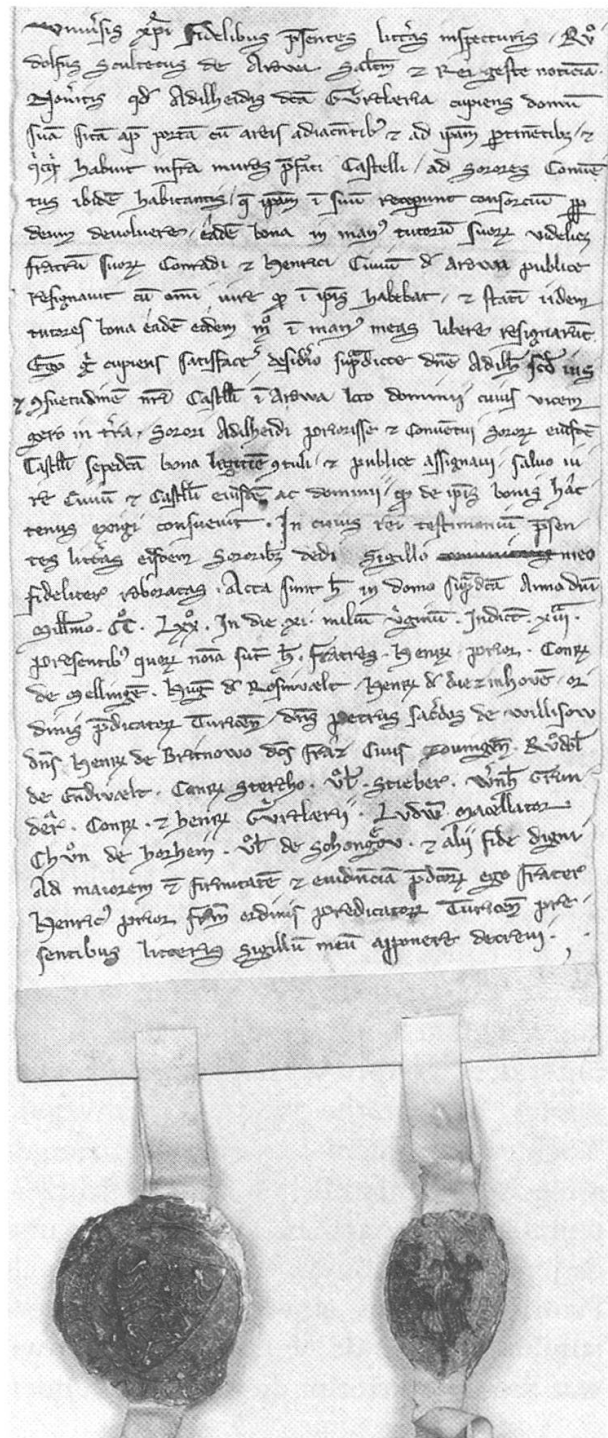 Univ͛sis xp̄i fidelibus p̄sentes litt͛as inspecturis . Rvͦ
dolfus Scultetus de Arawa Salt̄m ⁊ Rei geste noticiā.
Nov͛itis qd̄ Adilheidis dc̄a Gv͛tlæria cupiens domū
suā sitā ap̄ portā cū areis adiacentib⁹ ⁊ ad ipam p̄tinētib⁹ ⁊
habuit infra muros p̄fati Castelli / ad Sorores Convē
tus ibidē habitantis / q̄ ipam ī suū receperunt consorciū pp̄
deum devolvere / eadē bona in man⁹ tutorū suoꝝ videlicꝫ
fratrū suoꝝ Conradi ⁊ Henrici Civiū d̄ Arawa publice
resignavit cū omī iure qd̄ ī ip̄is habebat . ⁊ statī iidem
tutores bona eadē eidem mͦ ī man⁹ meas libere resignarūt.
Ego g͛ cupiens satisfac͛e desid͛io sup̄dicte dn̄e Adilh̄ scd̄ ius
⁊ ꝯsuetudinē nr̄i Castell̄i ī Arawa loco dominij cuius vicem
gero in t͛ra . Sorori Adilheidi priorisse ⁊ Conventui Soroꝝ eiusdē
Castell̄i sepedc̄a bona legittīe ꝯtuli . ⁊ publice assignavi . salvo iu
re Civiū ⁊ Castell̄i eiusdē ac dominij / qd̄ de ip̄is bonis hac
tenus exigi consuevit . In cuius rei testimoniū p̄sen
tes litt͛as eisdem Sororib⁹ dedi Sigillo meo
fidelit͛ roboratas . Acta sunt h̄ in domo sup̄dc̄a Anno dn̄i
Mill̄imo . CͦC̄ . Lxͦxͦ . In die xi . miliū v͛ginū . Indict̄ . xiiiia .
presentib⁹ quoꝝ noīa sūt h̄ . fratres . Henr̄ . prior . Conr̄
de Mellingē . Huḡ d̄ Rosinvælt . Henr̄ d̄ diezinhovē . or
dinis p̄dicatoꝝ Turicen̄ . dn̄s petrus sac͛dos de Willisow
dn̄s Henr̄ de Britnowo dc̄s friæz Civis Zovingen̄ . Rvͦdol̄
de Endivælt . Conr̄ Stercho . vͦl̄ . Stieber . Wnh̄ Grun
der͛ . Conr̄ . ⁊ henr̄ Gv͛tlærij . Ludw̄ . macellator
Chvͦn de horhein . vͦl̄ de Schongōv . ⁊ alij fide digni
Ad maiorem ē firmitatē ⁊ evidn̄ciā p̄dc̄oꝝ ego frater
Henric⁹ prior frm̄ ordinis predicatoꝝ Turicen̄ pre
sentibus litteris Sigillū meū apponere decrevi .